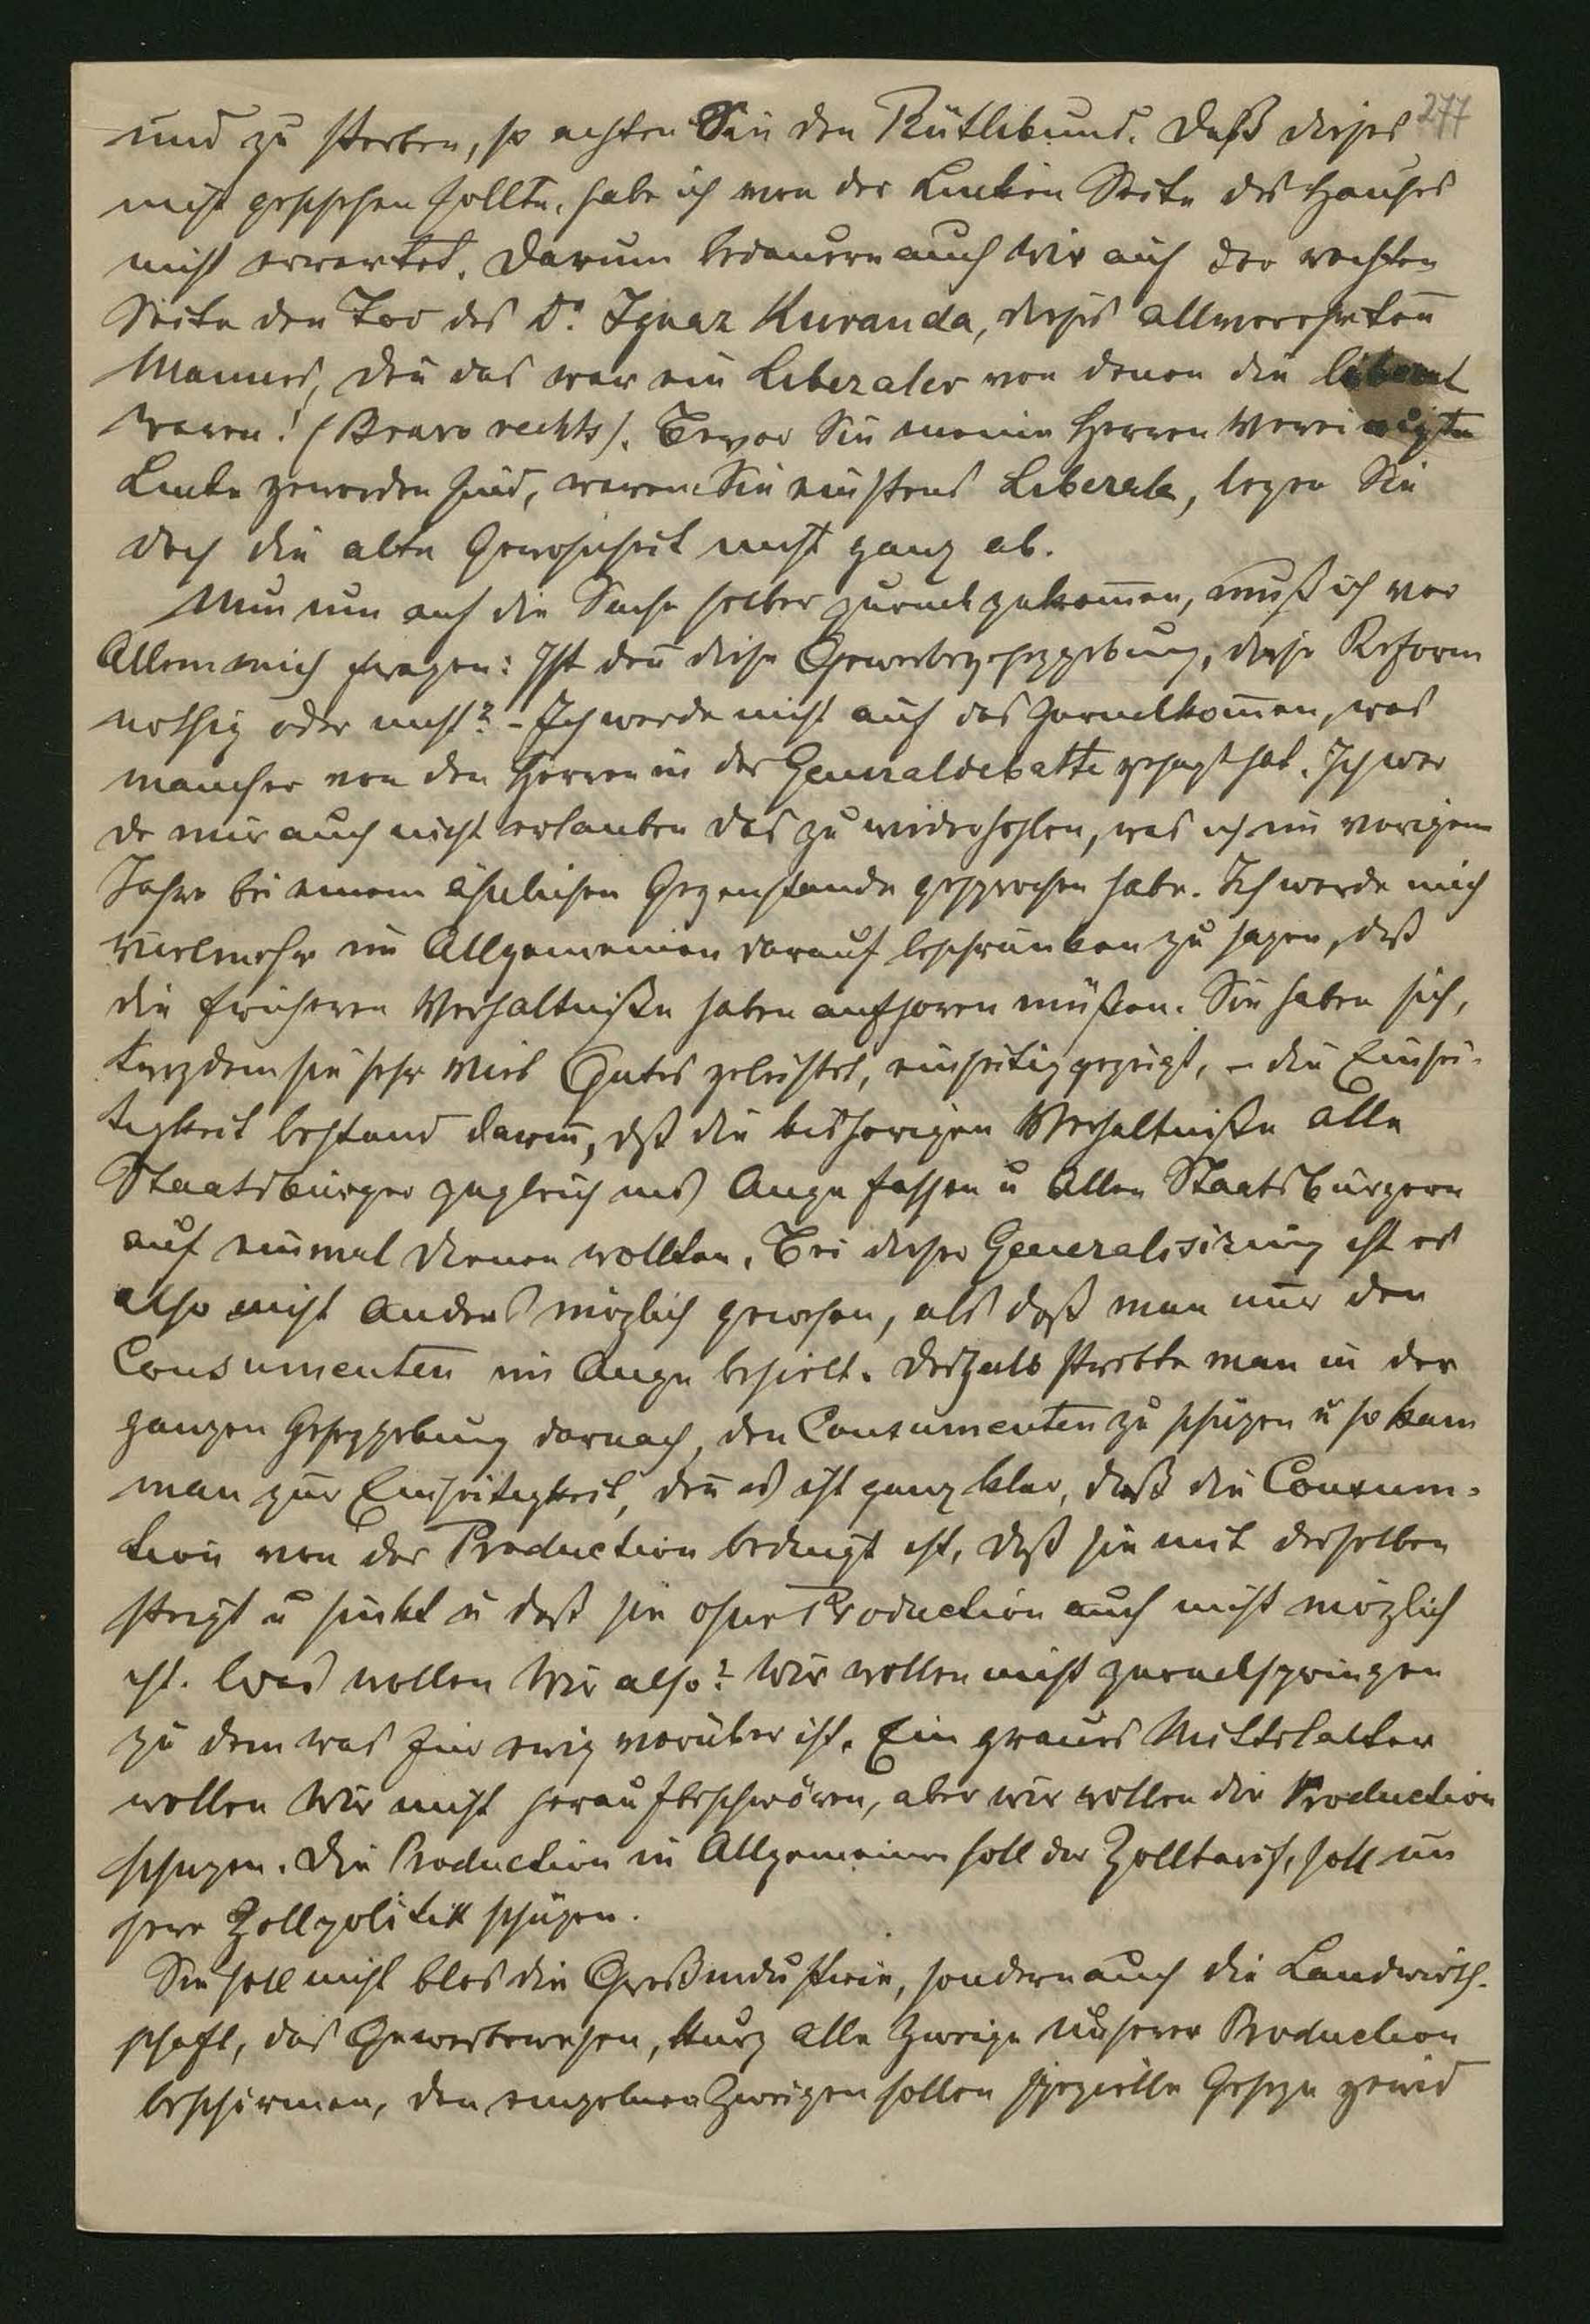 277
und zu sterben, so achten Sie den Rütlibund. Daß dieses
nicht geschehen sollte, habe ich von der Linken Seite des Hauses
nicht erwartet. Darum bedauern auch Wir auf der rechten
Seite den Tod des Dr. Ignaz Kuranda, dieses allverehrten̄
Mannes, den̄ das war ein Liberaler von denen die liberal
waren! (Bravo rechts). Bevor Sie meine Herren Vereinigte
Linke geworden sind, waren Sie einstens Liberale, legen Sie
doch die alte Gewohnheit nicht ganz ab.
Um nun auf die Sache selber zurückzukom̄en, muß ich vor
Allem mich fragen: Ist den̄ diese Gewerbegesetzgebung, diese Reform
nothig oder nicht? – Ich werde nicht auf das zurückkom̄en, was
mancher von den Herren in der Generaldebatte gesagt hat. Ich wer
de mir auch nicht erlauben das zu wiederhohlen, was ich im vorigem
Jahre bei einem ähnlichen Gegenstande gesprochen habe. Ich werde mich
vielmehr im Allgemeinen darauf beschränken zu sagen, daß
die früheren Verhaltniße haben aufhoren müßen. Sie haben sich,
trotzdem sie sehr viel Gutes geleistet, einseitig gezeigt, – die Einsei-
tigkeit bestand darin̄, dß die bisherigen Verhaltniße alle
Staatsbürger zugleich ins Auge fassen u allen Staatsbürgern
auf einmal dienen wollten. Bei dieser Generalisirung ist es
also nicht anders möglich gewesen, als daß man nur den
Consumenten im Auge behielt. Deshalb strebte man in der
ganzen Gesetzgebung darnach, den Consumenten zu schützen u so kam
man zur Einseitigkeit, den̄ es ist ganz klar, daß die Consum-
tion von der Production bedingt ist, daß sie mit derselben
steigt u sinkt u daß sie ohne Production auch nicht möglich
ist. Was wollen Wir also? Wir wollen nicht zurückspringen
zu dem was für ewig vorüber ist. Ein graues Mittelalter
wollen Wir nicht heraufbeschwören, aber wir wollen die Production
schützen. Die Production im Allgemeinen soll der Zolltarif, soll un
sere Zollpolitik schützen.
Sie soll nicht blos die Großindustrie, sondern auch die Landwirth-
schaft, das Gewerbewesen, kurz alle Zweige unserer Production
beschirmen, den einzelnen Zweigen sollen spezielle Gesetze gewid